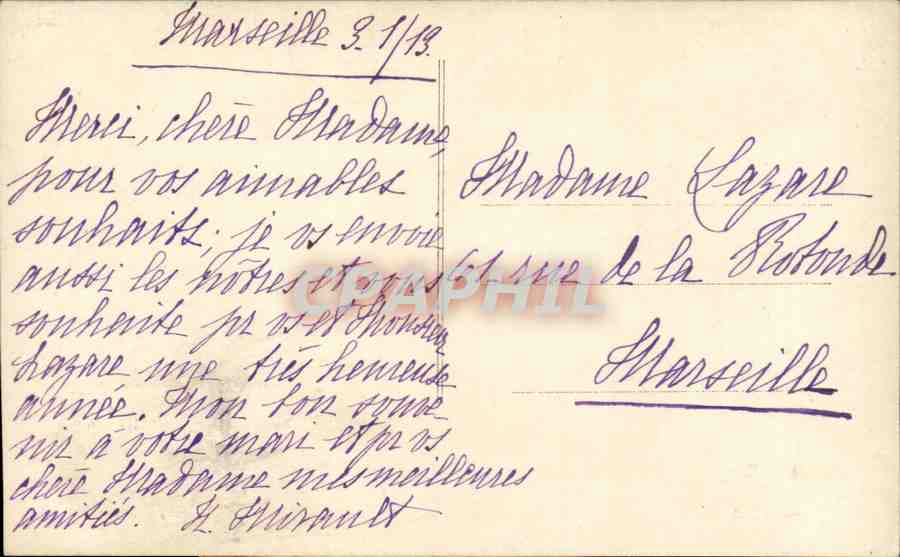 Marseille 3.1/19.
Merci, chère Madame,
pour vos aimables
souhaits; je vs envoie
aussi les nôtres et vous
souhaite pr vs et Monsieur
Lazare une très heureuse
année. Mon bon souve-
nir à votre mari et pr vs
chère Madame mes meilleures
amitiés. H. Mirault
Madame Lazare
61 rue de la Rotonde
Marseille
CPAPHIL